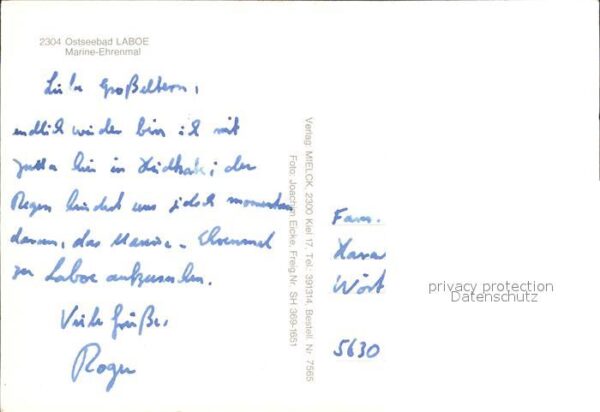 2304 Ostseebad LABOE
Marine-Ehrenmal
Liebe Großeltern,
endlich wieder bin ich mit
Jutta hier in ; der
Regen hindert uns jedoch momentan
daran, das Marine-Ehrenmal
zu Laboe aufzusuchen.
Viele Grüße,
Roger
Verlag MIELCK, 2300 Kiel 17, Tel. 391314, Bestell. Nr 7565
Foto: Joachim Eicke, Freig.Nr. SH 369-1651
Fam.
Hara
Wört
5630
privacy protection
Datenschutz